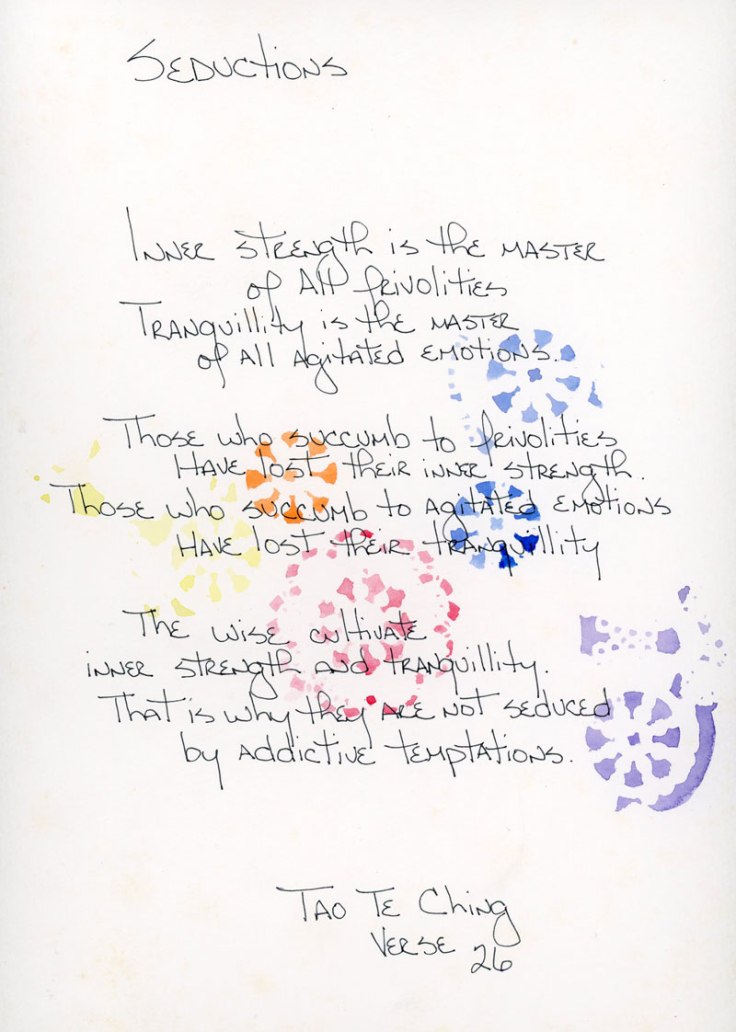 Seductions
Inner strength is the master
of all frivolities
Tranquillity is the master
of all agitated emotions.
Those who succumb to frivolities
Have lost their inner strength.
Those who succumb to agitated emotions
Have lost their tranquillity
The wise cultivate
inner strength and tranquillity.
That is why they are not seduced
by addictive temptations.
Tao Te Ching
Verse 26